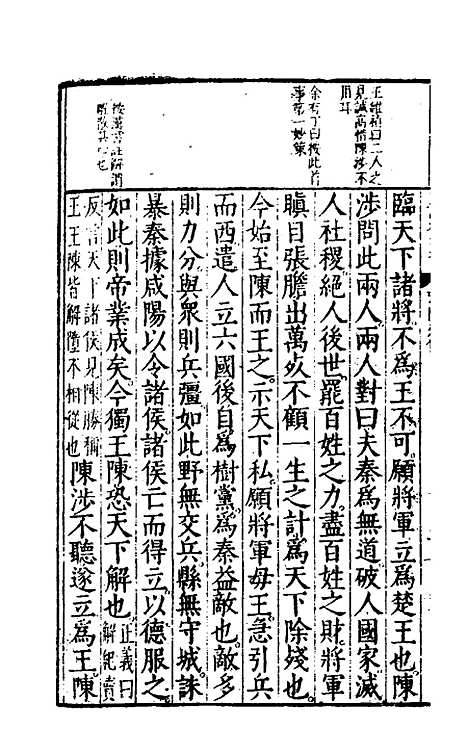 王維楨曰二人之
見誠高惜陳涉不
用耳
余有丁曰按此首
事第一妙策
臨天下諸將不爲王不可願將軍立爲楚王也陳
涉問此兩人兩人對曰夫秦爲無道破人國家滅
人社稷絕人後世罷百姓之力盡百姓之財將軍
瞋目張膽出萬死不顧一生之計爲天下除殘也
今始至陳而王之示天下私願將軍毋王急引兵
而西遣人立六國後自爲樹黨爲秦益敵也敵多
則力分與衆則兵彊如此野無交兵縣無守城誅
暴秦據咸陽以令諸侯諸侯亡而得立以德服之
如此則帝業成矣今獨王陳恐天下解也正義曰解紀賣
反言天下諸侯見陳勝稱
王王陳皆解墮不相從也陳涉不聽遂立爲王陳